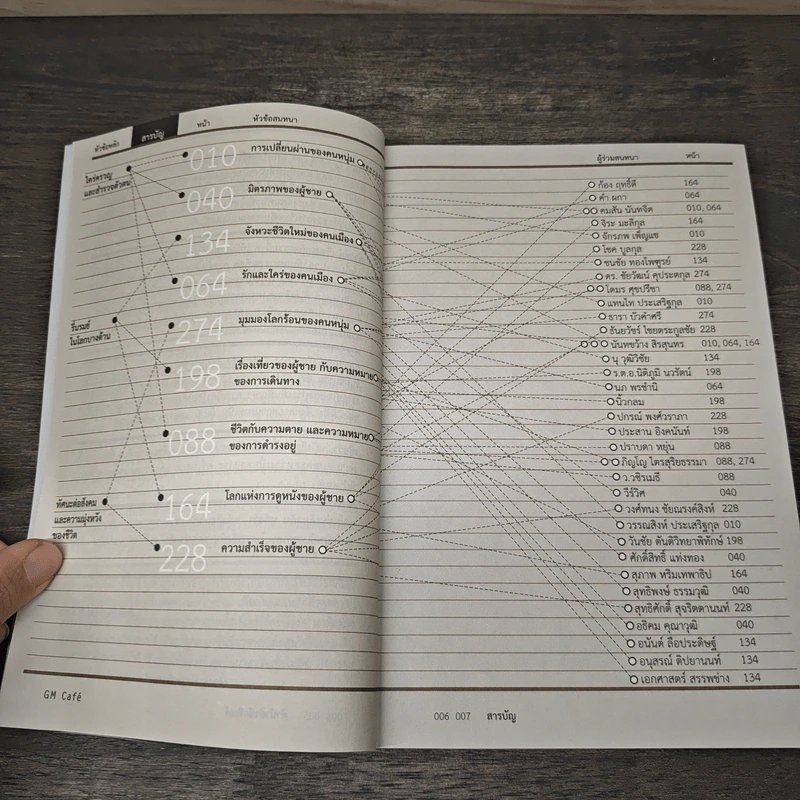 หัวข้อหลัก สารบัญ หน้า หัวข้อสนทนา
ใคร่ครวญ
และสำรวจตัวตน
010 การเปลี่ยนผ่านของคนหนุ่ม
040 มิตรภาพของผู้ชาย
134 จังหวะชีวิตใหม่ของคนเมือง
064 รักและใคร่ของคนเมือง
รื่นรมย์
ในโลกบางด้าน
274 มุมมองโลกร้อนของคนหนุ่ม
198 เรื่องเที่ยวของผู้ชาย กับความหมาย
ของการเดินทาง
088 ชีวิตกับความตาย และความหมาย
ของการดำรงอยู่
ทัศนะต่อสังคม
และความมุ่งหวัง
ของชีวิต
164 โลกแห่งการดูหนังของผู้ชาย
228 ความสำเร็จของผู้ชาย
GM Café
ผู้ร่วมสนทนา หน้า
ก้อง ฤทธิ์ดี 164
คำ ผกา 064
คมสัน นันทจิต 010, 064
จิระ มะลิกุล 164
จักรภพ เพ็ญแข 010
โชค บูลกุล 228
ชนชัย ทองไพฑูรย์ 134
ดร. ชัยวัฒน์ คุประตกุล 274
โตมร ศุขปรีชา 088, 274
แทนไท ประเสริฐกุล 010
ธารา บัวคำศรี 274
ธันยวัชร์ ไชยตระกูลชัย 228
นันทขว้าง สิรสุนทร 010, 064, 164
นุ วุฒิวิชัย 134
ร.ต.อ.นิติภูมิ นวรัตน์ 198
นภ พรชำนิ 064
นิ้วกลม 198
ปกรณ์ พงศ์วราภา 228
ประสาน อิงคนันท์ 198
ปราบดา หยุ่น 088
ภิญโญ ไตรสุริยธรรมา 088, 274
ว.วชิรเมธี 088
วีร์วิศ 040
วงศ์ทนง ชัยณรงค์สิงห์ 228
วรรณสิงห์ ประเสริฐกุล 010
วันชัย ตันติวิทยาพิทักษ์ 198
ศักดิ์สิทธิ์ แท่งทอง 040
สุภาพ หริมเทพาธิป 164
สุทธิพงษ์ ธรรมวุฒิ 040
สุทธิศักดิ์ สุจริตตานนท์ 228
อธิคม คุณาวุฒิ 040
อนันต์ ลือประดิษฐ์ 134
อนุสรณ์ ติปยานนท์ 134
เอกศาสตร์ สรรพช่าง 134
006 007 สารบัญ